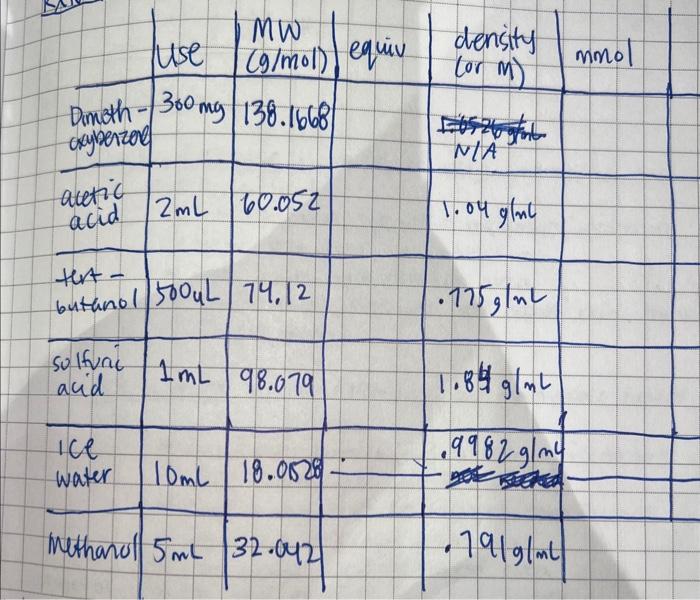 use MW (g/mol) equiv density (or M) mmol
Dimeth- oxybenzene 300 mg 138.1668 N/A
acetic acid 2 mL 60.052 1.04 g/mL
tert- butanol 500uL 74.12 .775 g/mL
solfuric acid 1 mL 98.079 1.84 g/mL
ice water 10mL 18.01528 .9982 g/mL
methanol 5 mL 32.042 .791 g/mL